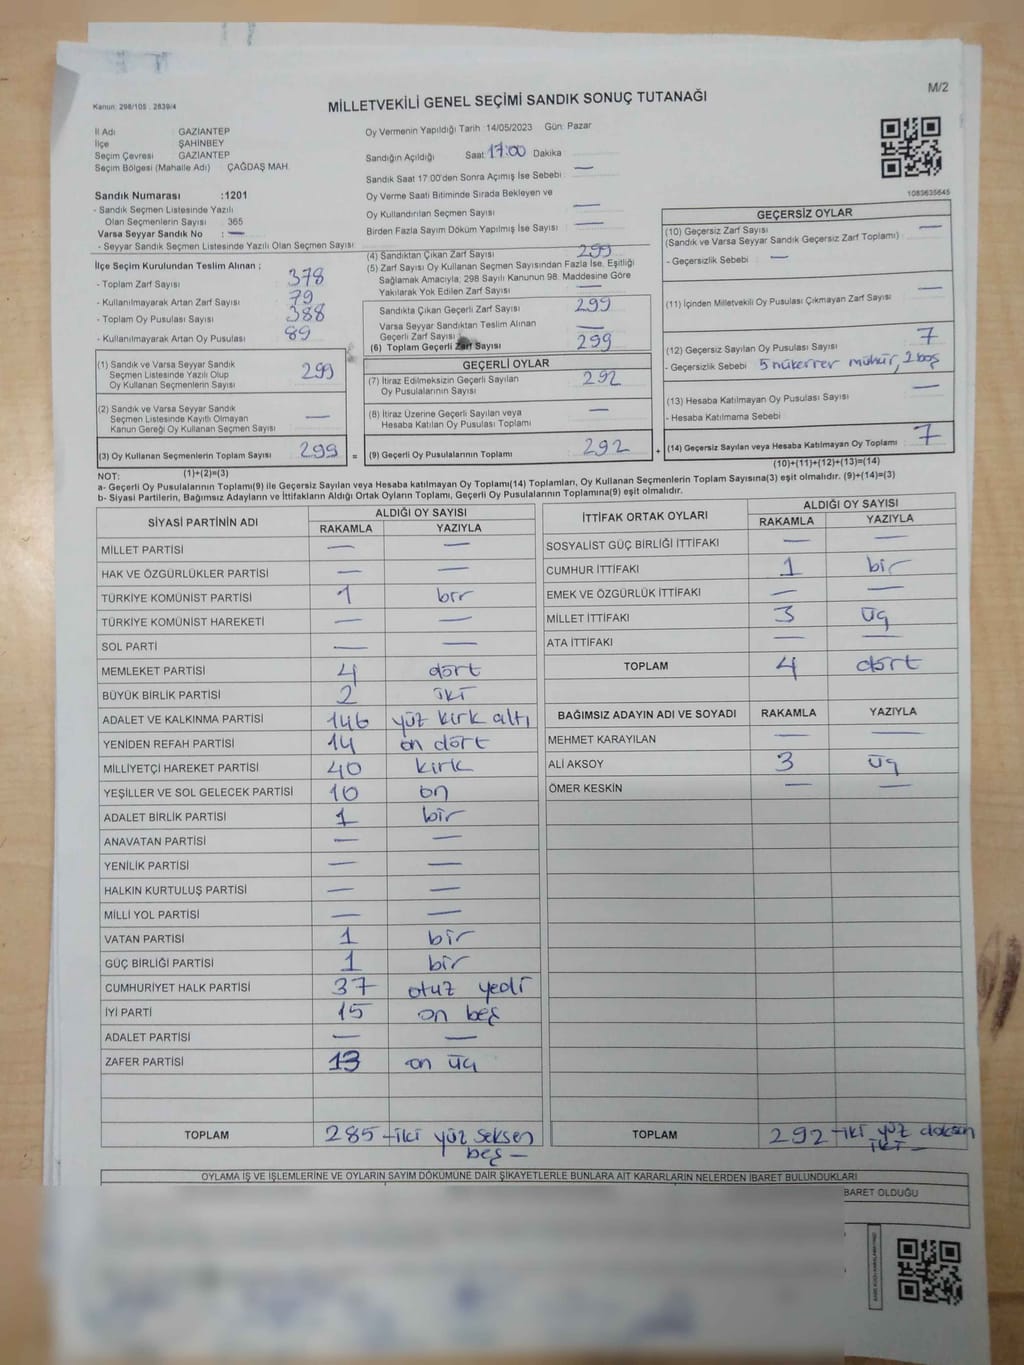 M/2
Kanun: 298/105 . 2839/4
MİLLETVEKİLİ GENEL SEÇİMİ SANDIK SONUÇ TUTANAĞI
İl Adı : GAZİANTEP
İlçe : ŞAHİNBEY
Seçim Çevresi : GAZİANTEP
Seçim Bölgesi (Mahalle Adı) : ÇAĞDAŞ MAH.
Sandık Numarası :1201
- Sandık Seçmen Listesinde Yazılı
Olan Seçmenlerin Sayısı : 365
Varsa Seyyar Sandık No : —
- Seyyar Sandık Seçmen Listesinde Yazılı Olan Seçmen Sayısı:
Oy Vermenin Yapıldığı Tarih :14/05/2023 Gün: Pazar
Sandığın Açıldığı Saat 17:00 Dakika
Sandık Saat 17:00'den Sonra Açımış İse Sebebi : —
Oy Verme Saati Bitiminde Sırada Bekleyen ve
Oy Kullandırılan Seçmen Sayısı —
Birden Fazla Sayım Döküm Yapılmış İse Sayısı : —
1083635645
İlçe Seçim Kurulundan Teslim Alınan ;
- Toplam Zarf Sayısı : 378
- Kullanılmayarak Artan Zarf Sayısı : 79
- Toplam Oy Pusulası Sayısı : 388
- Kullanılmayarak Artan Oy Pusulası : 89
(1) Sandık ve Varsa Seyyar Sandık
Seçmen Listesinde Yazılı Olup
Oy Kullanan Seçmenlerin Sayısı : 299
(2) Sandık ve Varsa Seyyar Sandık
Seçmen Listesinde Kayıtlı Olmayan
Kanun Gereği Oy Kullanan Seçmen Sayısı : —
(3) Oy Kullanan Seçmenlerin Toplam Sayısı : 299 =
(4) Sandıktan Çıkan Zarf Sayısı : 299
(5) Zarf Sayısı Oy Kullanan Seçmen Sayısından Fazla İse, Eşitliği
Sağlamak Amacıyla; 298 Sayılı Kanunun 98. Maddesine Göre
Yakılarak Yok Edilen Zarf Sayısı : —
Sandıkta Çıkan Geçerli Zarf Sayısı : 299
Varsa Seyyar Sandıktan Teslim Alınan
Geçerli Zarf Sayısı : —
(6) Toplam Geçerli Zarf Sayısı : 299
GEÇERLİ OYLAR
(7) İtiraz Edilmeksizin Geçerli Sayılan
Oy Pusulalarının Sayısı : 292
(8) İtiraz Üzerine Geçerli Sayılan veya
Hesaba Katılan Oy Pusulası Toplamı : —
(9) Geçerli Oy Pusulalarının Toplamı : 292 +
GEÇERSİZ OYLAR
(10) Geçersiz Zarf Sayısı : —
(Sandık ve Varsa Seyyar Sandık Geçersiz Zarf Toplamı)
- Geçersizlik Sebebi : —
(11) İçinden Milletvekili Oy Pusulası Çıkmayan Zarf Sayısı : —
(12) Geçersiz Sayılan Oy Pusulası Sayısı : 7
- Geçersizlik Sebebi : 5 mükerrer mühür, 2 boş
(13) Hesaba Katılmayan Oy Pusulası Sayısı : —
- Hesaba Katılmama Sebebi :
(14) Geçersiz Sayılan veya Hesaba Katılmayan Oy Toplamı : 7
NOT: (1)+(2)=(3) (10)+(11)+(12)+(13)=(14)
a- Geçerli Oy Pusulalarının Toplamı(9) ile Geçersiz Sayılan veya Hesaba Katılmayan Oy Toplamı(14) Toplamları, Oy Kullanan Seçmenlerin Toplam Sayısına(3) eşit olmalıdır. (9)+(14)=(3)
b- Siyasi Partilerin, Bağımsız Adayların ve İttifakların Aldığı Ortak Oyların Toplamı, Geçerli Oy Pusulalarının Toplamına(9) eşit olmalıdır.
SİYASİ PARTİNİN ADI ALDIĞI OY SAYISI
RAKAMLA YAZIYLA
MİLLET PARTİSİ — —
HAK VE ÖZGÜRLÜKLER PARTİSİ — —
TÜRKİYE KOMÜNİST PARTİSİ 1 bir
TÜRKİYE KOMÜNİST HAREKETİ — —
SOL PARTİ — —
MEMLEKET PARTİSİ 4 dört
BÜYÜK BİRLİK PARTİSİ 2 iki
ADALET VE KALKINMA PARTİSİ 146 yüz kırk altı
YENİDEN REFAH PARTİSİ 14 on dört
MİLLİYETÇİ HAREKET PARTİSİ 40 kırk
YEŞİLLER VE SOL GELECEK PARTİSİ 10 on
ADALET BİRLİK PARTİSİ 1 bir
ANAVATAN PARTİSİ — —
YENİLİK PARTİSİ — —
HALKIN KURTULUŞ PARTİSİ — —
MİLLİ YOL PARTİSİ — —
VATAN PARTİSİ 1 bir
GÜÇ BİRLİĞİ PARTİSİ 1 bir
CUMHURİYET HALK PARTİSİ 37 otuz yedi
İYİ PARTİ 15 on beş
ADALET PARTİSİ — —
ZAFER PARTİSİ 13 on üç
TOPLAM 285 -iki yüz seksen
beş —
İTTİFAK ORTAK OYLARI ALDIĞI OY SAYISI
RAKAMLA YAZIYLA
SOSYALİST GÜÇ BİRLİĞİ İTTİFAKI — —
CUMHUR İTTİFAKI 1 bir
EMEK VE ÖZGÜRLÜK İTTİFAKI — —
MİLLET İTTİFAKI 3 üç
ATA İTTİFAKI — —
TOPLAM 4 dört
BAĞIMSIZ ADAYIN ADI VE SOYADI RAKAMLA YAZIYLA
MEHMET KARAYILAN — —
ALİ AKSOY 3 üç
ÖMER KESKİN — —
TOPLAM 292 -iki yüz doksan
iki —
OYLAMA İŞ VE İŞLEMLERİNE VE OYLARIN SAYIM DÖKÜMÜNE DAİR ŞİKAYETLERLE BUNLARA AİT KARARLARIN NELERDEN İBARET BULUNDUKLARI
BARET OLDUĞU